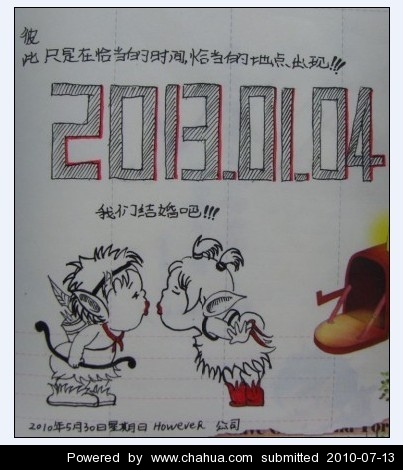 彼
此 只是在恰当的时间,恰当的地点、出现!!!
2013.01.04
我们结婚吧!!!
2010年5月30日星期日 However 公司
Powered by www.chahua.com submitted 2010-07-13